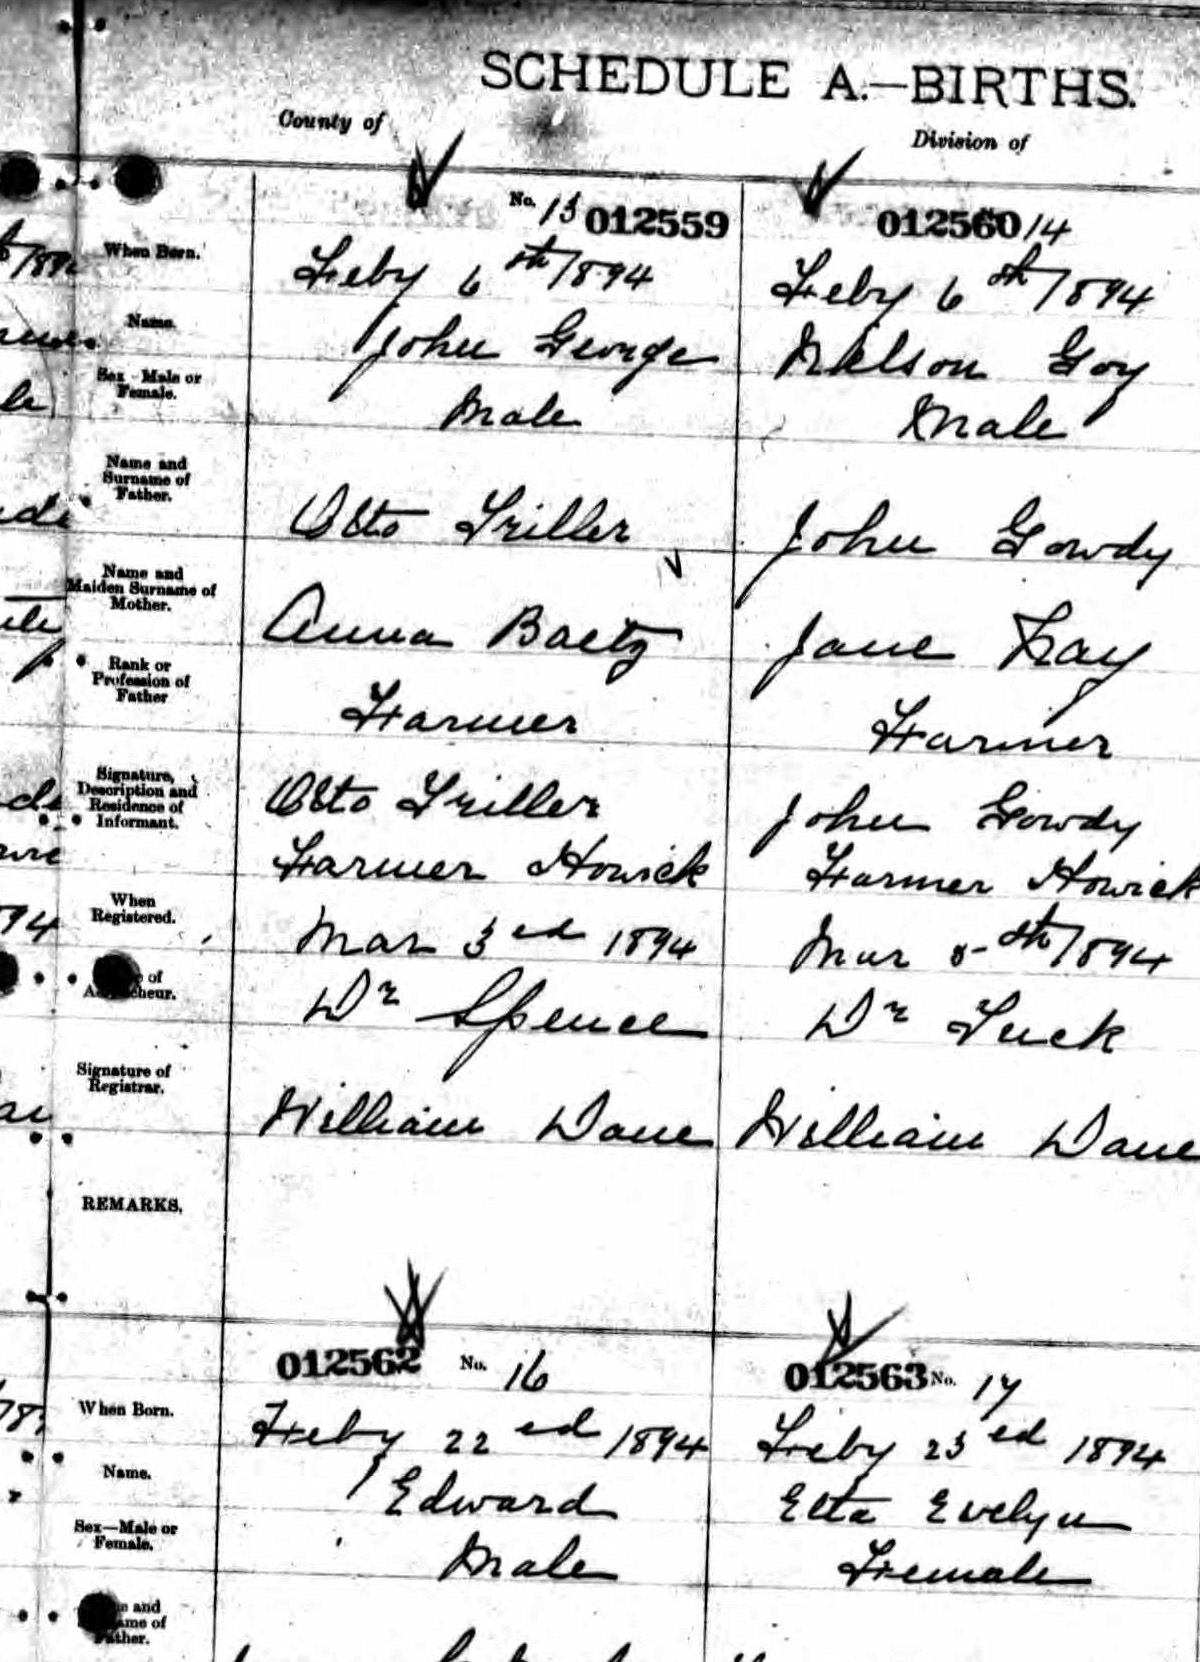 SCHEDULE A.—BIRTHS.
County of
Division of
No. 13 012559
012560 14
When Born.
Feby 6th 1894
Feby 6th 1894
Name.
John George
Nelson Goy
Sex—Male or Female.
Male
Male
Name and Surname of Father.
Otto Triller
John Gowdy
Name and Maiden Surname of Mother.
Anna Baetz
Jane Fray
Rank or Profession of Father
Farmer
Farmer
Signature, Description and Residence of Informant.
Otto Triller
John Gowdy
Farmer Howick
Farmer Howick
When Registered.
Mar 3ed 1894
Mar 5th 1894
of
Dr Spence
Dr Tuck
Signature of Registrar.
William Dane
William Dane
REMARKS.
012562 No. 16
012563 No. 17
When Born.
Feby 22ed 1894
Feby 23ed 1894
Name.
Edward
Etta Evelyn
Sex—Male or Female.
Male
Female
and
of